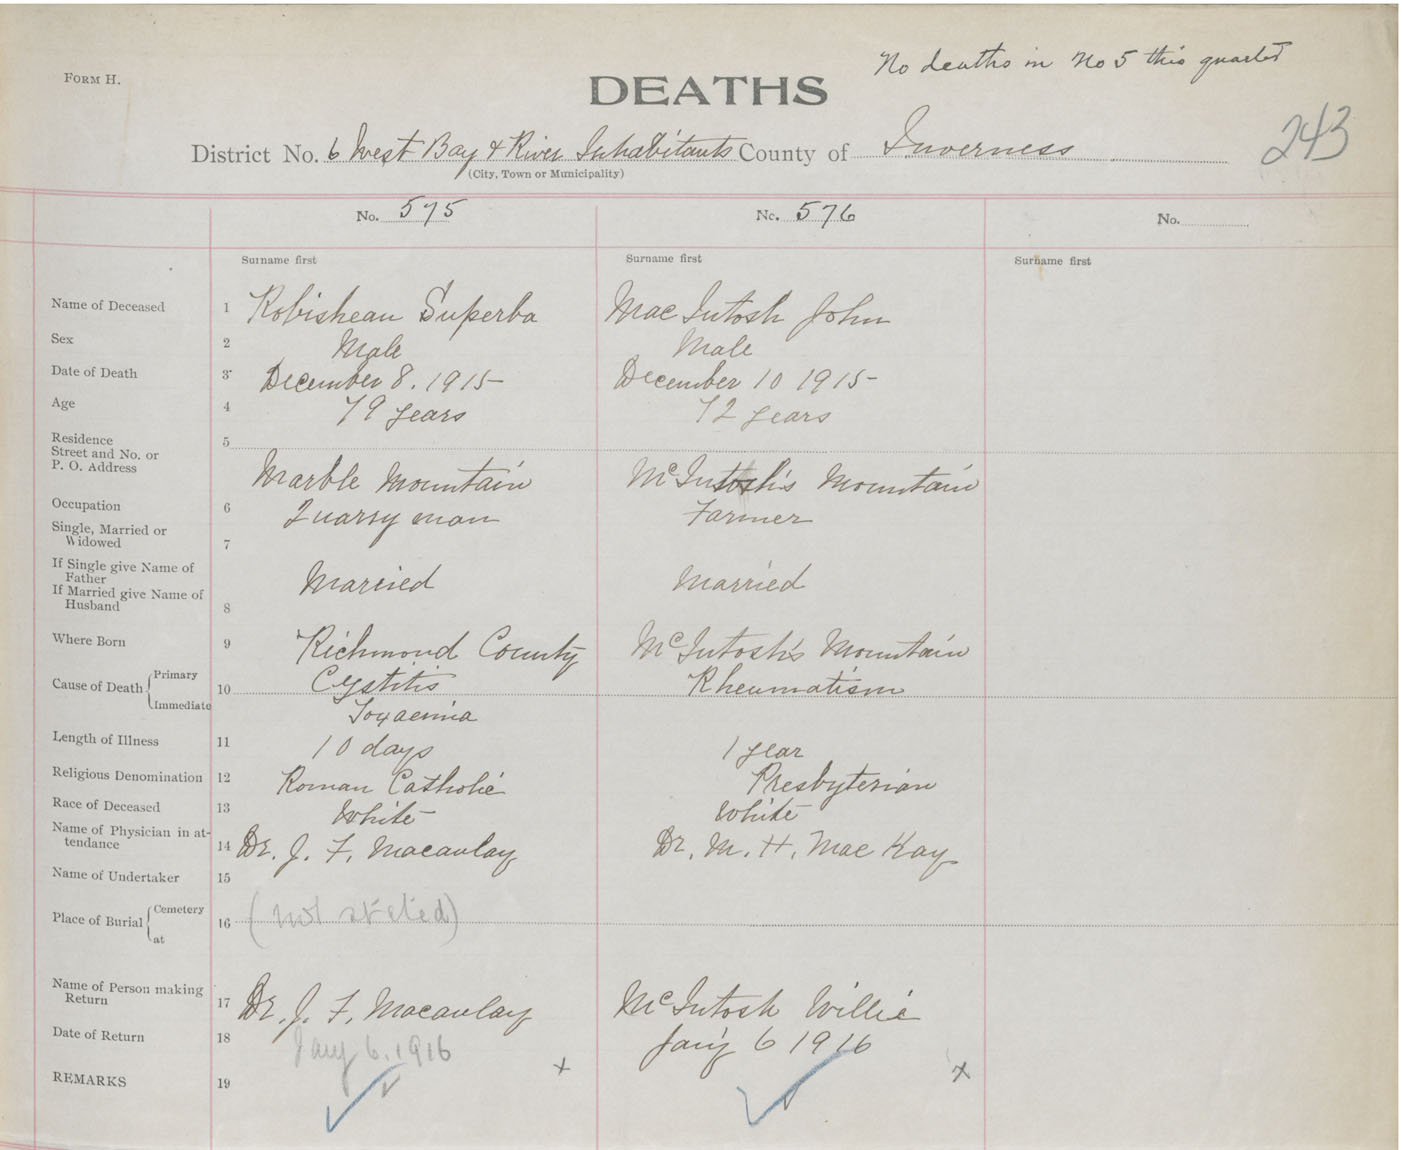 No deaths in No 5 this quarter
FORM H.
DEATHS
243
District No. 6 West Bay & River Inhabitants County of Inverness
(City, Town or Municipality)
No. 575 No. 576 No.
Surname first Surname first Surname first
Name of Deceased 1 Robisheau Superba Mac Intosh John
Sex 2 Male Male
Date of Death 3 December 8. 1915 December 10 1915
Age 4 79 years 72 years
Residence 5
Street and No. or
P. O. Address Marble Mountain McIntosh's Mountain
Occupation 6 Quarry man Farmer
Single, Married or
Widowed 7
If Single give Name of
Father Married Married
If Married give Name of
Husband 8
Where Born 9 Richmond County McIntosh's Mountain
Cause of Death Primary 10 Cystitis Rheumatism
Immediate Toxaemia
Length of Illness 11 10 days 1 year
Religious Denomination 12 Roman Catholic Presbyterian
Race of Deceased 13 White White
Name of Physician in at-
tendance 14 Dr. J. F. Macaulay Dr. M. H. Mac Kay
Name of Undertaker 15
Place of Burial Cemetery 16 (not stated)
at
Name of Person making
Return 17 Dr. J. F. Macaulay McIntosh Willie
Date of Return 18 Jany 6. 1916 Jan'y 6 1916
x x
REMARKS 19